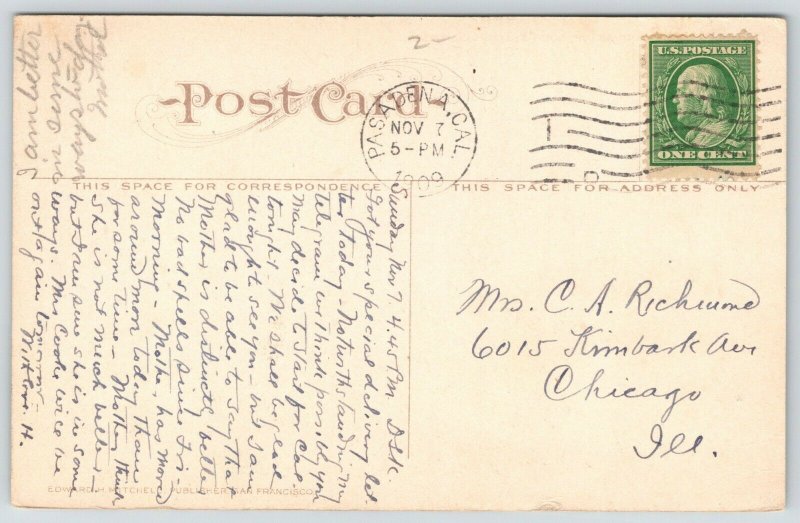 2-
Post Card
PASADENA, CAL.
NOV 7
5-PM
1909
U.S. POSTAGE
ONE CENT
THIS SPACE FOR CORRESPONDENCE
THIS SPACE FOR ADDRESS ONLY
Sunday Nov 7. 4.45 P.M.
Got your special delivery let
ter today - Notwithstanding my
telegram we think possibly you
may decide to start for Cal.
tonight - We shall be glad
enough to see you - but I am
glad to be able to say that
Mother is distinctly better
No bad spells since Fri-
Morning - Mother has moved
around more today than
for some time - Mother thinks
she is not much better -
but I am sure she is in some
ways. Mrs Cooke will be
out again tomorrow -
With love. H.
I am better
Mrs. C. A. Richmond
6015 Kimbark Ave
Chicago
Ill.
EDWARD H. MITCHELL, PUBLISHER, SAN FRANCISCO